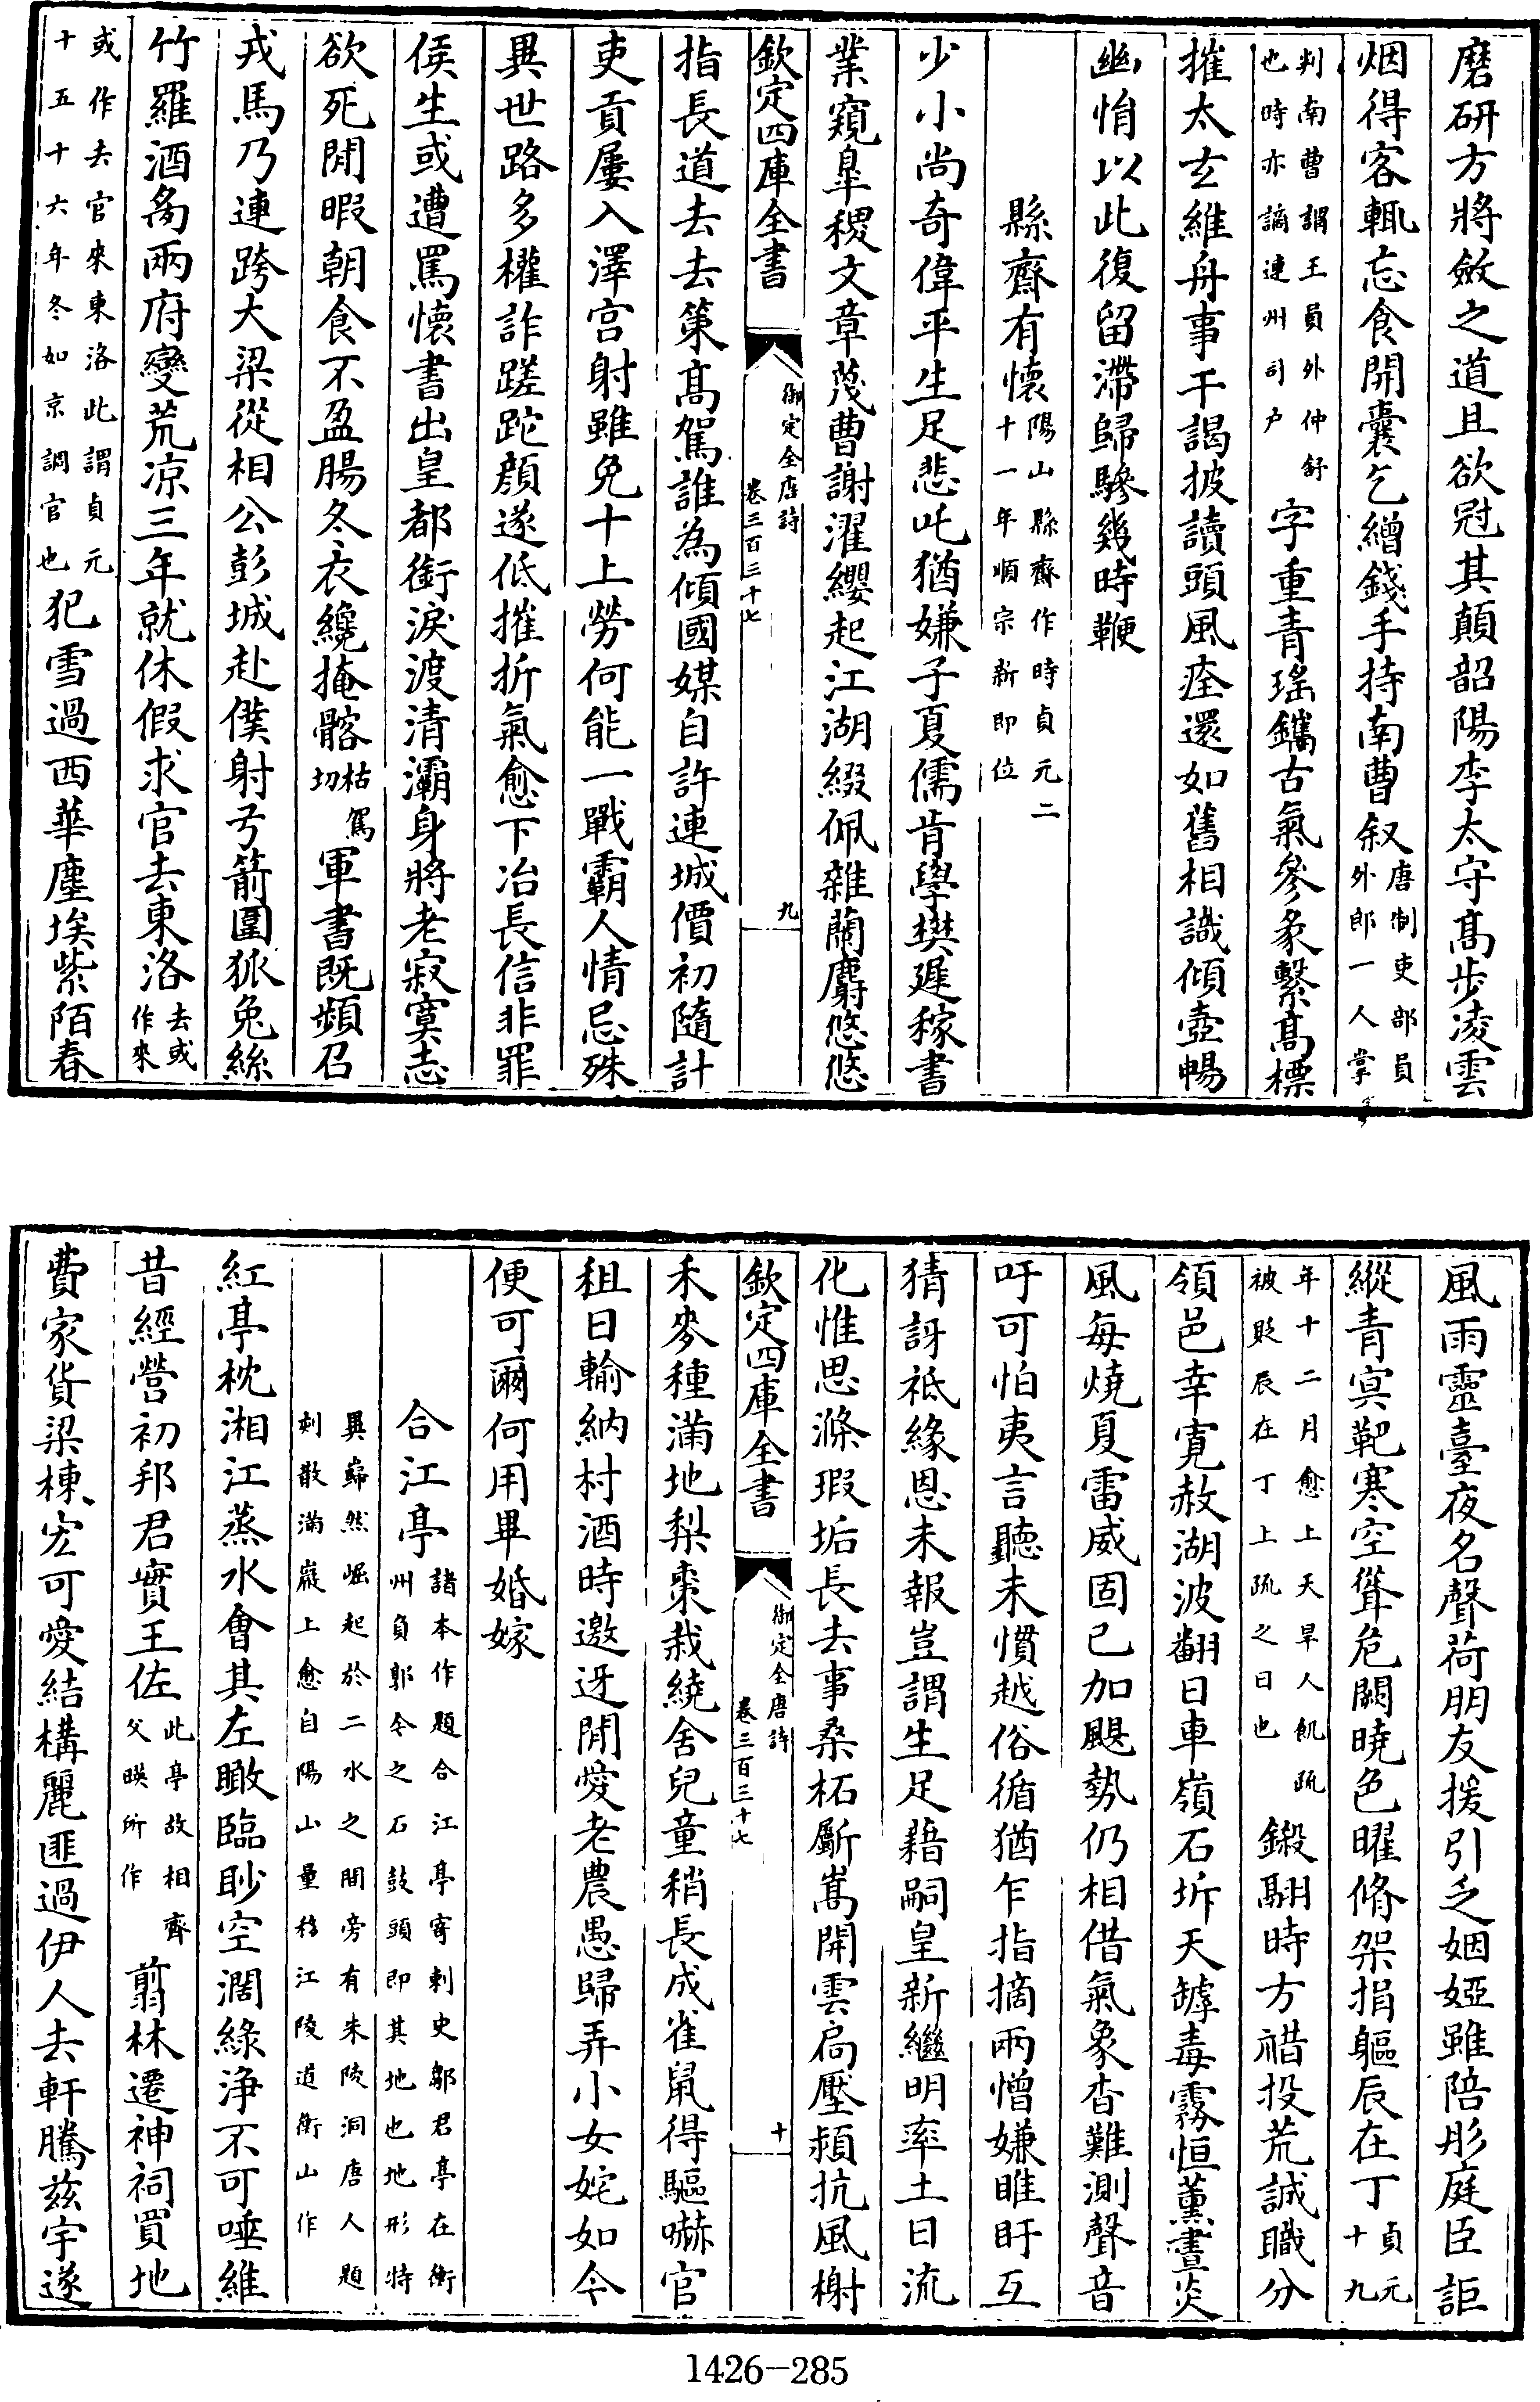 磨研方將斂之道且欲冠其顛韶陽李太守髙步凌雲
烟得客輒忘食開囊乞繒錢手持南曹叙唐制吏部員外郎一人掌
判南曹謂王員外仲舒也時亦謫連州司户字重青瑤鐫古氣參象繫髙標
摧太玄維舟事干謁披讀頭風痊還如舊相識傾壺暢
幽悁以此復留滯歸驂幾時鞭
縣齋有懷陽山縣齋作時貞元二十一年順宗新即位
少小尚奇偉平生足悲吒猶嫌子夏儒肯學樊遲稼書
業窺皐稷文章蔑曹謝濯纓起江湖綴佩雜蘭麝悠悠
欽定四庫全書
御定全唐詩
卷三百三十七
九
指長道去去策髙駕誰為傾國媒自許連城價初隨計
吏貢屢入澤宫射雖免十上勞何能一戰霸人情忌殊
異世路多權詐蹉跎顔遂低摧折氣愈下冶長信非罪
侯生或遭罵懐書出皇都銜淚渡清灞身將老寂寞志
欲死閒暇朝食不盈腸冬衣纔掩髂枯駕切軍書既頻召
戎馬乃連跨大梁從相公彭城赴僕射弓箭圍狐兔絲
竹羅酒炙兩府變荒凉三年就休假求官去東洛去或作來
或作去官來東洛此謂貞元十五十六年冬如京調官也犯雪過西華塵埃紫陌春
風雨靈臺夜名聲荷朋友援引乏姻婭雖陪彤庭臣詎
縱青冥靶寒空聳危闕曉色曜脩架捐軀辰在丁貞元十九
年十二月愈上天旱人飢疏被貶辰在丁上疏之日也鎩翮時方䄍投荒誠職分
領邑幸寛赦湖波翻日車嶺石坼天罅毒霧恒薰晝炎
風每燒夏雷威固已加颶勢仍相借氣象杳難測聲音
吁可怕夷言聽未慣越俗循猶乍指摘兩憎嫌睢盱互
猜訝祗緣恩未報豈謂生足藉嗣皇新繼明率土日流
化惟思滌瑕垢長去事桑柘斸嵩開雲扃壓潁抗風榭
欽定四庫全書
御定全唐詩
卷三百三十七
十
禾麥種滿地梨棗栽繞舍兒童稍長成雀鼠得驅嚇官
租日輸納村酒時邀迓閒愛老農愚歸弄小女姹如今
便可爾何用畢婚嫁
合江亭諸本作題合江亭寄刺史鄒君亭在衡州負郭今之石鼓頭即其地也地形特
異巋然崛起於二水之間旁有朱陵洞唐人題刻散滿巖上愈自陽山量移江陵道衡山作
紅亭枕湘江蒸水會其左瞰臨眇空濶綠浄不可唾維
昔經營初邦君實王佐此亭故相齊父暎所作翦林遷神祠買地
費家貨梁棟宏可愛結構麗匪過伊人去軒騰兹宇遂
1426-285